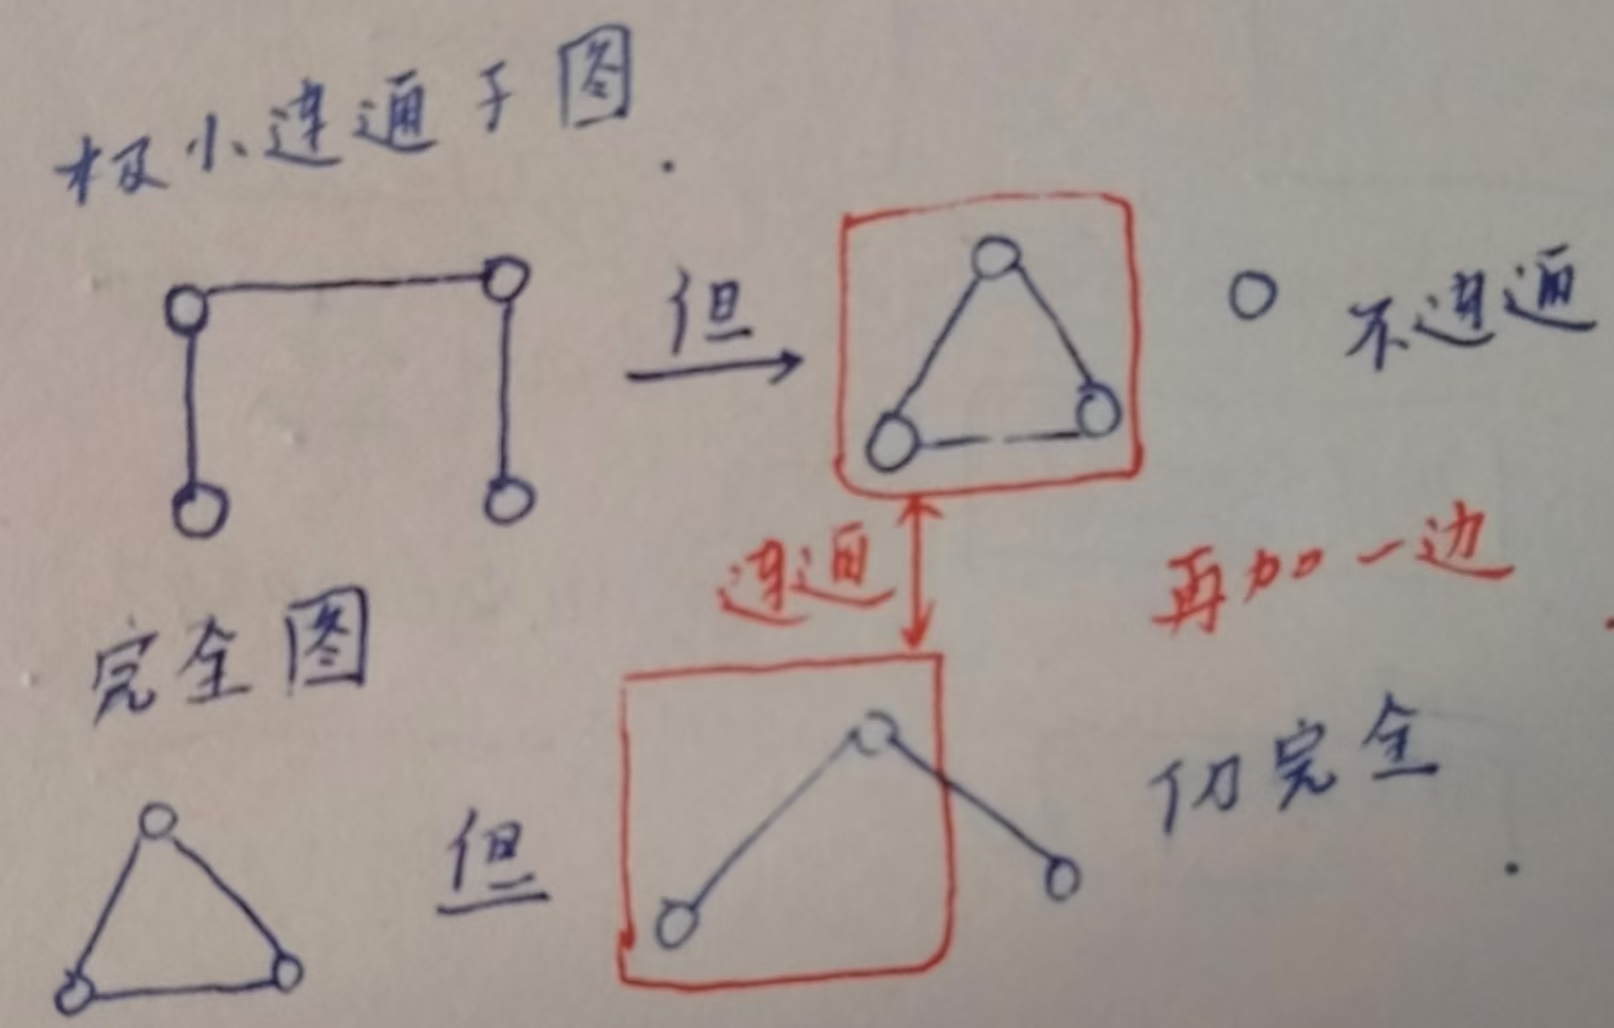 极小连通子图.
但
不连通
连通
再加一边
完全图
但
仍完全.